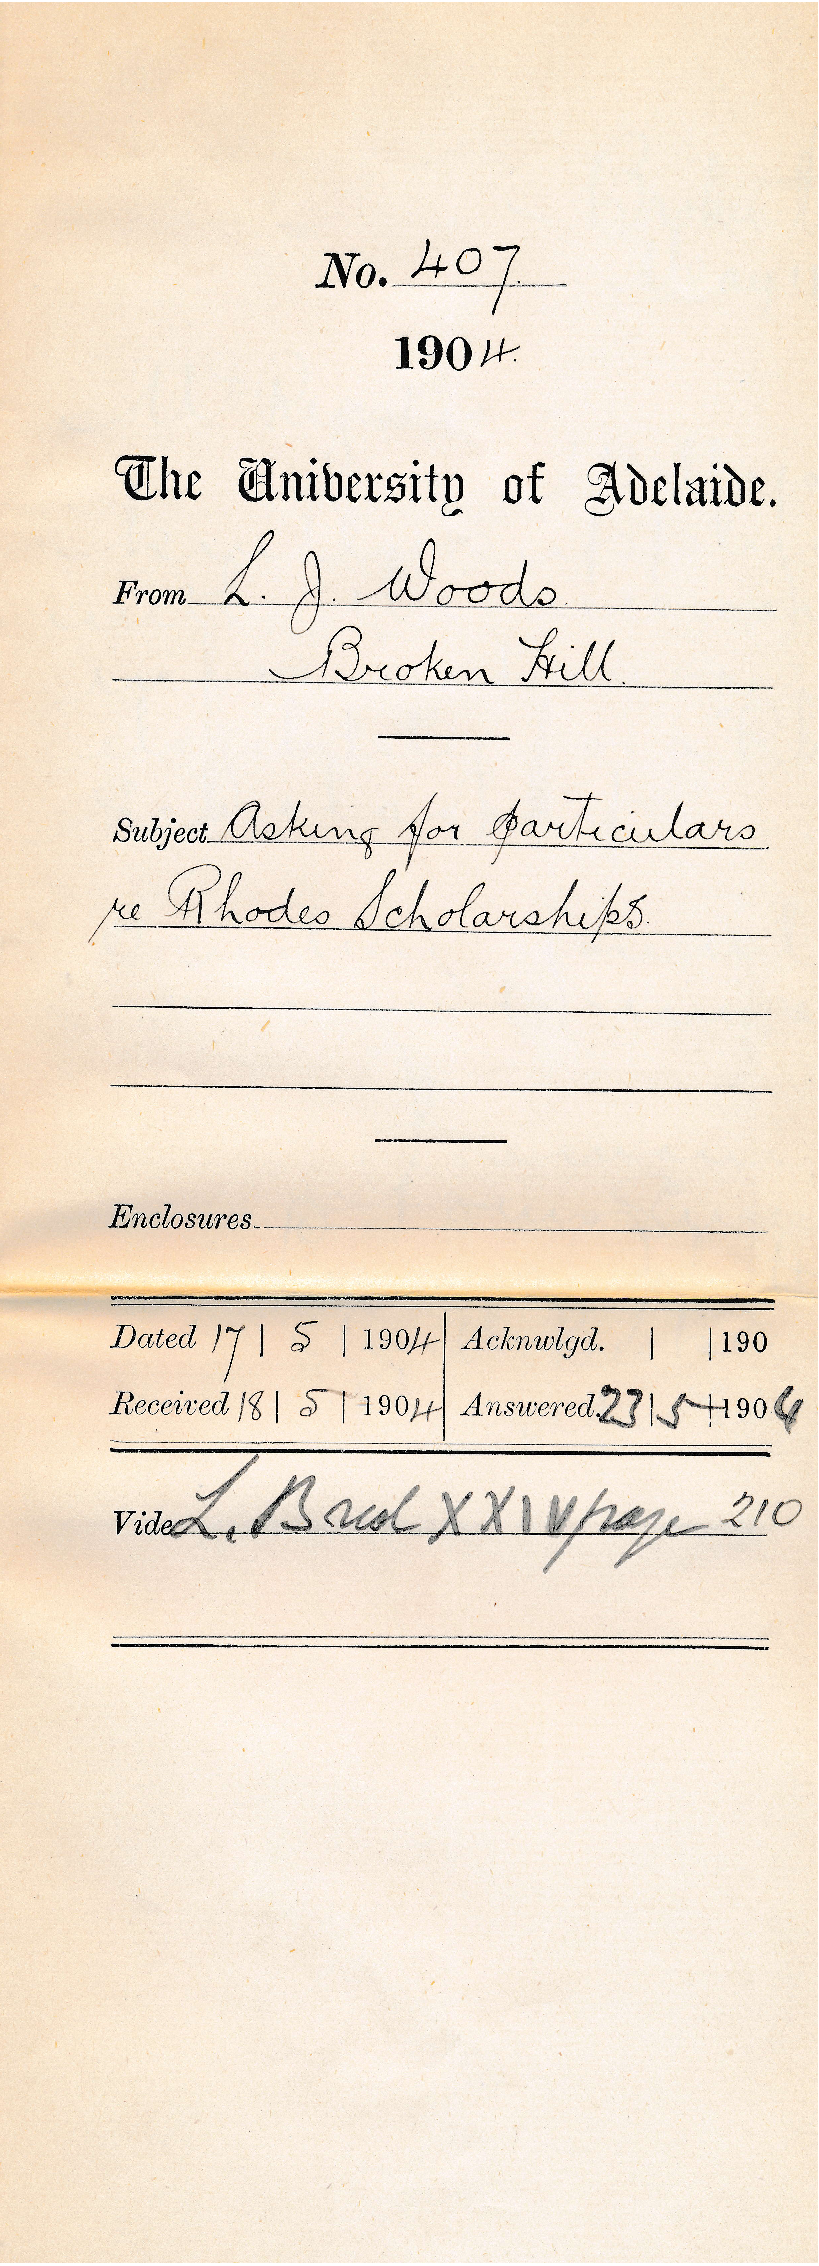 No. 407
1904
The University of Adelaide.
From L. J. Woods
Broken Hill.
Subject Asking for particulars
re Rhodes Scholarships.
Enclosures
Dated 17 | 5 | 1904 Acknwlgd. | | 190
Received 18 | 5 | 1904 Answered. 23 | 5 | 1904
Vide L. XXIV page 210